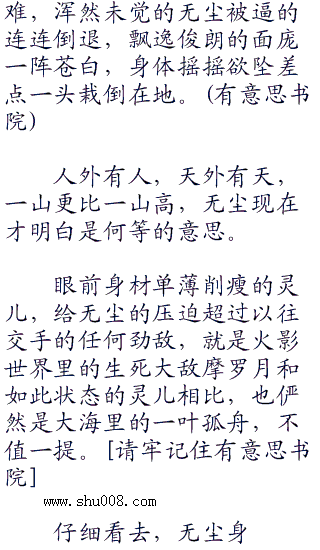 难，浑然未觉的无尘被逼的
连连倒退，飘逸俊朗的面庞
一阵苍白，身体摇摇欲坠差
点一头栽倒在地。(有意思书
院)
人外有人，天外有天，
一山更比一山高，无尘现在
才明白是何等的意思。
眼前身材单薄削瘦的灵
儿，给无尘的压迫超过以往
交手的任何劲敌，就是火影
世界里的生死大敌摩罗月和
如此状态的灵儿相比，也俨
然是大海里的一叶孤舟，不
值一提。[请牢记住有意思书
院]
www.shu008.com
仔细看去，无尘身